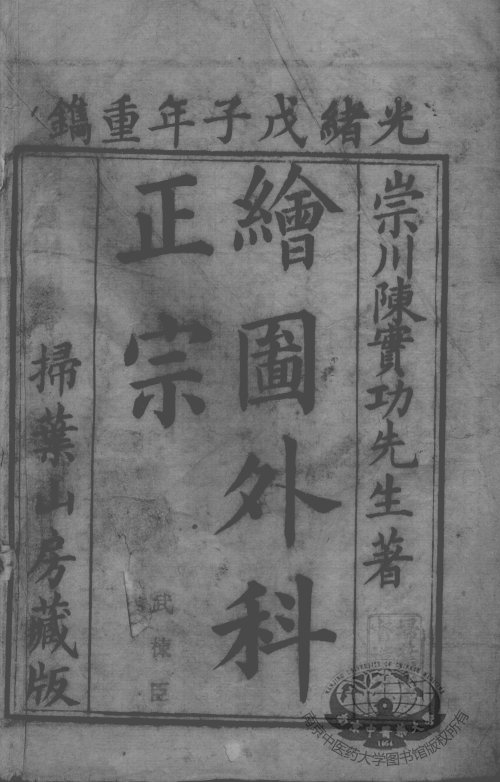 光緒戊子年重鐫
崇川陳實功先生著
繪圖外科
正宗
掃葉山房藏版
南京中医药大学图书馆版权所有
1954